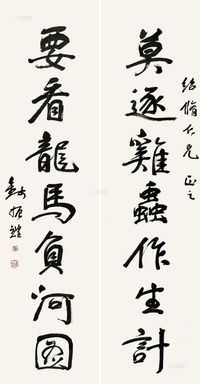 紹脩仁兄 正之
莫逐雞蟲作生計
要看龍馬負河圖
錢振鍠